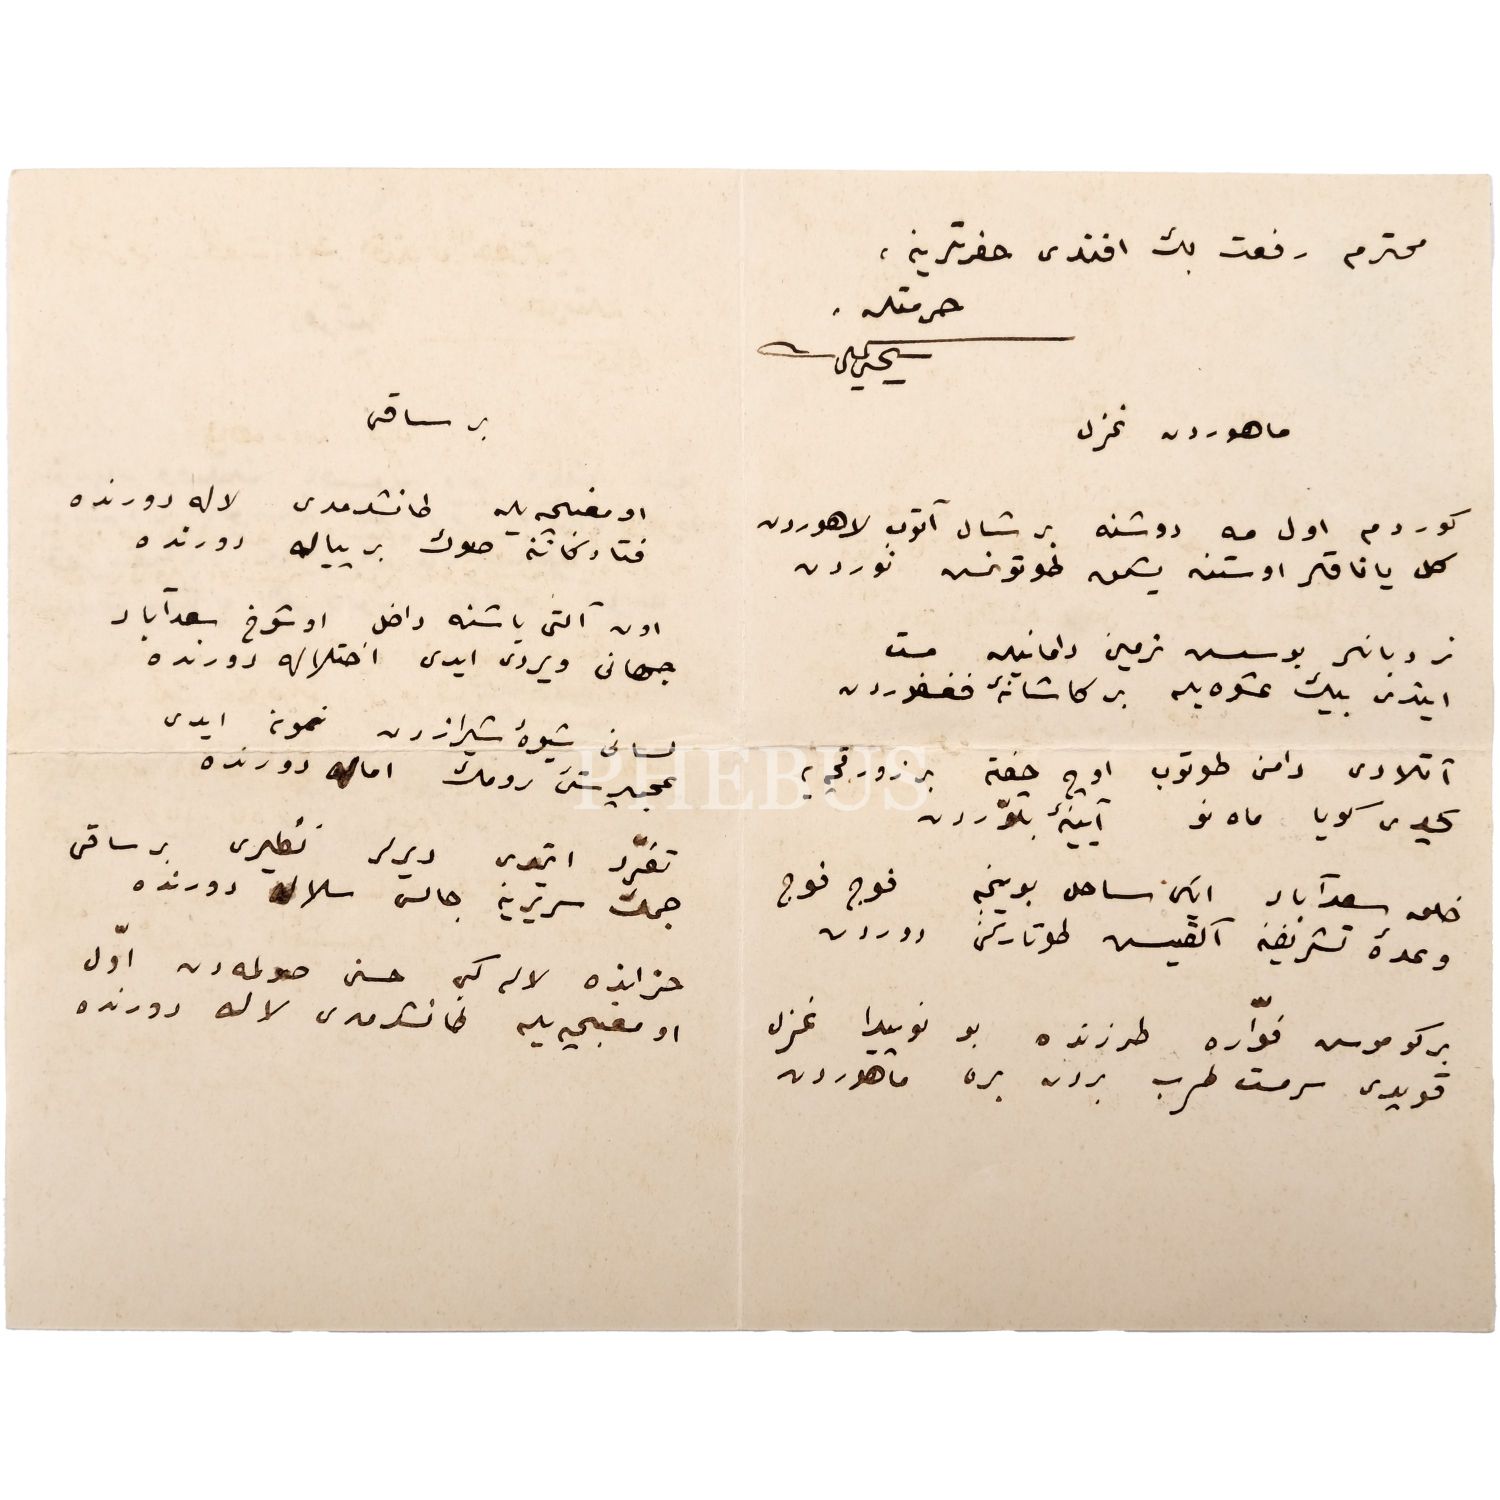 محترم رفعت بك افندی حضرتلرینه ،
حرمتله ،
یحیی كمال
ماهوردن غزل
كوردم اول مه دوشنه بر شال آتوب لاهوردن
كل یاناقلر اوستنه یشمق طوتونمش نوردن
نردبانلر بوسش نرمین دامانیله مست
ایندی بیك عشوه‌یله بر كاشانهٔ فغفوردن
آتلادی دامن طوتوب اوچ چفته بر زورقچه‌یه
كچدی كویا ماه نو آیینهٔ بلّوردن
خلق سعدآباد ایكی ساحل بوینجه فوج فوج
وعدهٔ تشریفنه آلقیش طوتاركن دوردن
بر كوموش فوّاره طرزنده بو نوپیدا غزل
قویدی سرمست طرب بردن بره ماهوردن
بر ساقی
او مغبچه‌یله طانشدمدی لاله دورنده
فتادكانه صوك بر پیاله دورنده
اون آلتی یاشنه داخل او شوخ سعدآباد
جهانی ویردی ایدی اختلاله دورنده
لسانی شیوهٔ شیرازدن نمونه ایدی
عجمپرستی رومك اماله دورنده
تفرّد ایتمدی دیرلر نظیری بر ساقی
جمك سریرینه جالس سلاله دورنده
خزانده لاله كبی حسنی صولمه‌دن اوّل
او مغبچه‌یله طانشدمدی لاله دورنده
PHEBUS